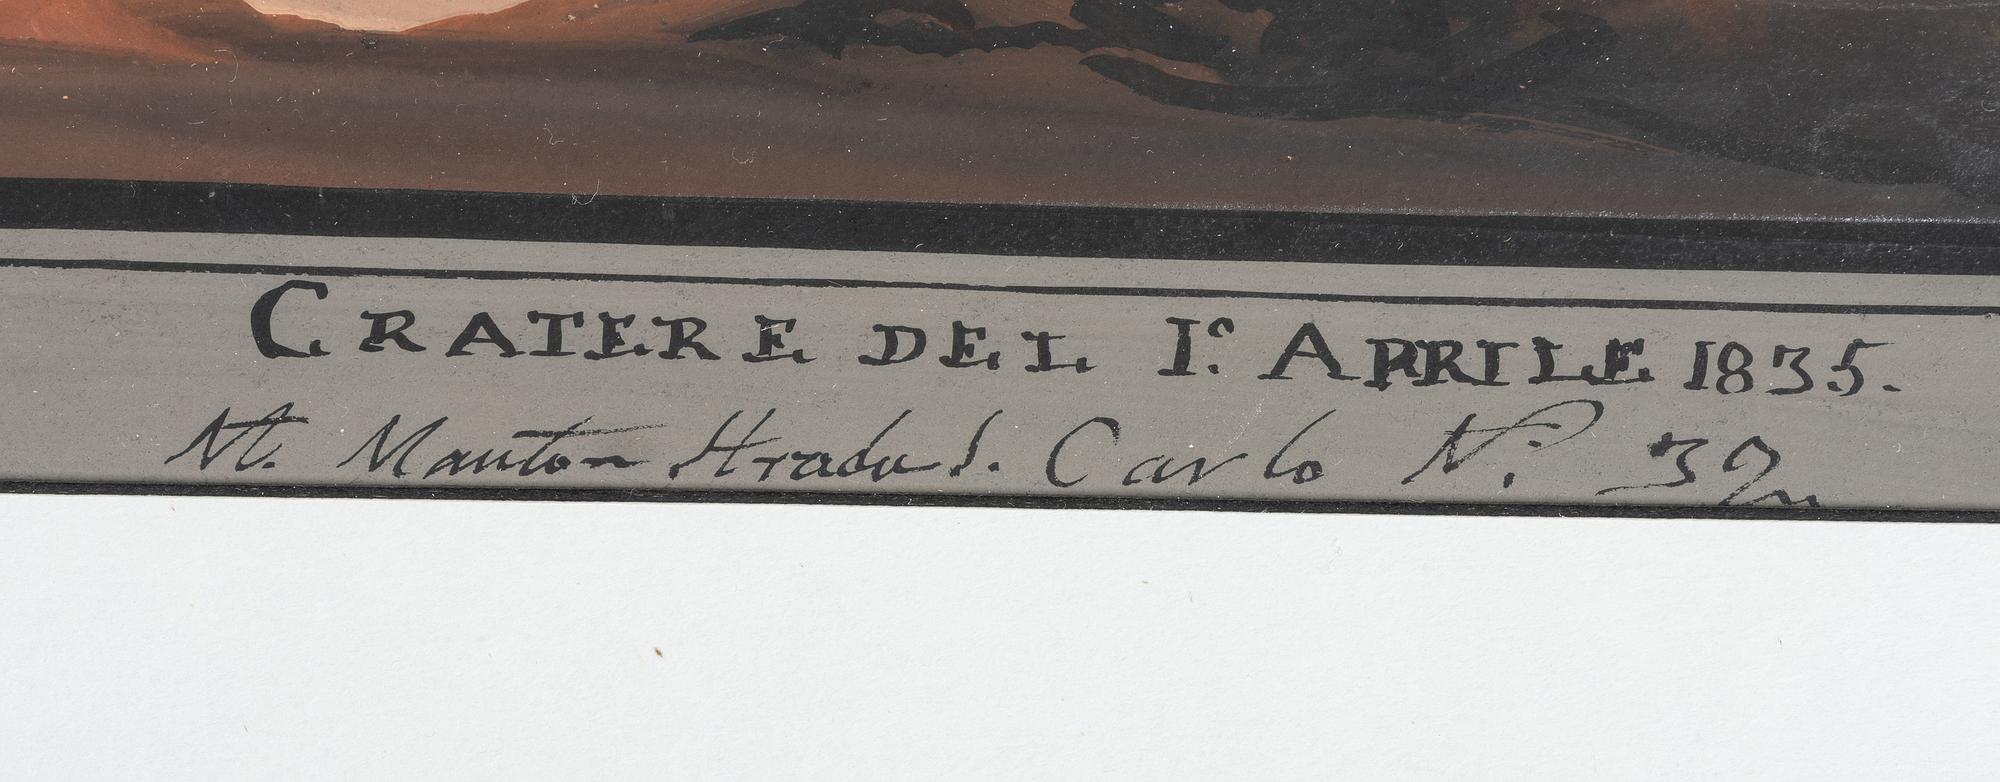 CRATERE DEL I.° APRILE 1835.
Strada S. Carlo N.° 32